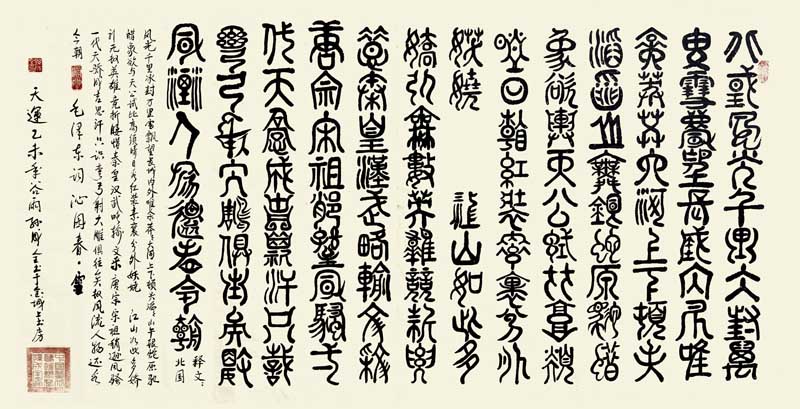 北國風光千里冰封萬
里雪飄望長城內外惟
余莽莽大河上下頓失
滔滔山舞銀蛇原馳蠟
象欲與天公試比高須
晴日看紅裝素裹分外
妖嬈 江山如此多
嬌引無數英雄競折腰
惜秦皇漢武略輸文采
唐宗宋祖稍遜風騷一
代天驕成吉思汗只識
彎弓射大雕俱往矣數
風流人物還看今朝
释文：
北国
风光千里冰封万里雪飘望长城内外惟余莽莽大河上下顿失滔滔山舞银蛇原驰
蜡象欲与天公试比高须晴日看红装素裹分外妖娆 江山如此多娇
引无数英雄竞折腰惜秦皇汉武略输文采唐宗宋祖稍逊风骚
一代天骄成吉思汗只识弯弓射大雕俱往矣数风流人物还看
今朝 毛泽东词 沁园春·雪
天運乙未年谷雨孙成全书于金城上书房